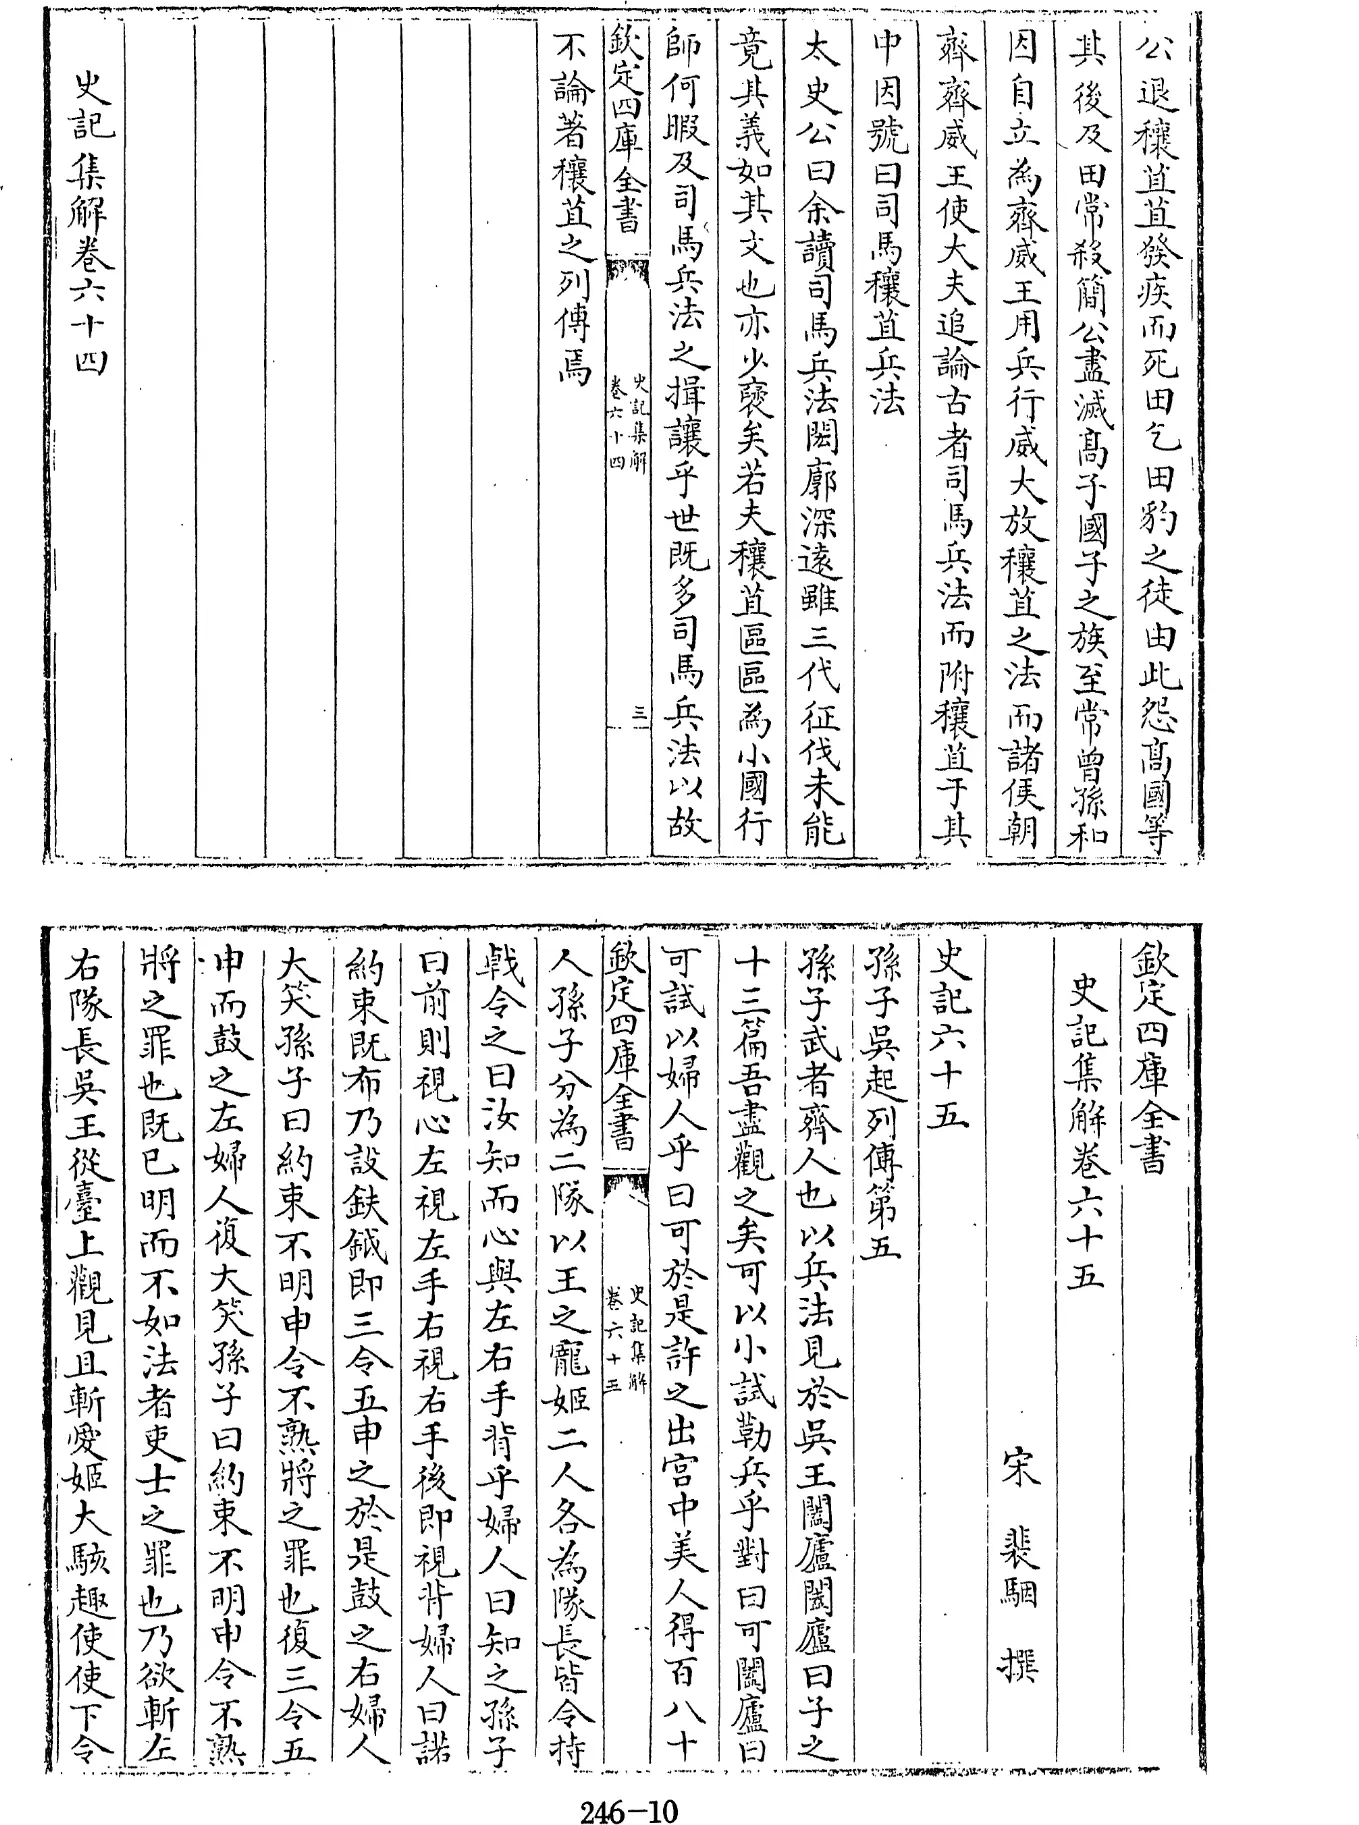 公退穰苴苴發疾而死田乞田豹之徒由此怨髙國等
其後及田常殺簡公盡滅髙子國子之族至常曾孫和
因自立為齊威王用兵行威大放穰苴之法而諸侯朝
齊齊威王使大夫追論古者司馬兵法而附穰苴于其
中因號曰司馬穰苴兵法
太史公曰余讀司馬兵法閎廓深逺雖三代征伐未能
竟其義如其文也亦少襃矣若夫穰苴區區為小國行
師何暇及司馬兵法之揖讓乎世既多司馬兵法以故
欽定四庫全書
史記集解
卷六十四
三
不論著穰苴之列傳焉
史記集解卷六十四
欽定四庫全書
史記集解卷六十五
宋 裴駰 撰
史記六十五
孫子吳起列傳第五
孫子武者齊人也以兵法見於吳王闔廬闔廬曰子之
十三篇吾盡觀之矣可以小試勒兵乎對曰可闔廬曰
可試以婦人乎曰可於是許之出宫中美人得百八十
欽定四庫全書
史記集解
卷六十三
人孫子分為二隊以王之寵姬二人各為隊長皆令持
戟令之曰汝知而心與左右手背乎婦人曰知之孫子
曰前則視心左視左手右視右手後即視背婦人曰諾
約束既布乃設鈇鉞即三令五申之於是鼓之右婦人
大笑孫子曰約束不明申令不熟將之罪也復三令五
申而鼓之左婦人復大笑孫子曰約束不明申令不熟
將之罪也既已明而不如法者吏士之罪也乃欲斬左
右隊長吳王從臺上觀見且斬愛姬大駭趣使使下令
246-10